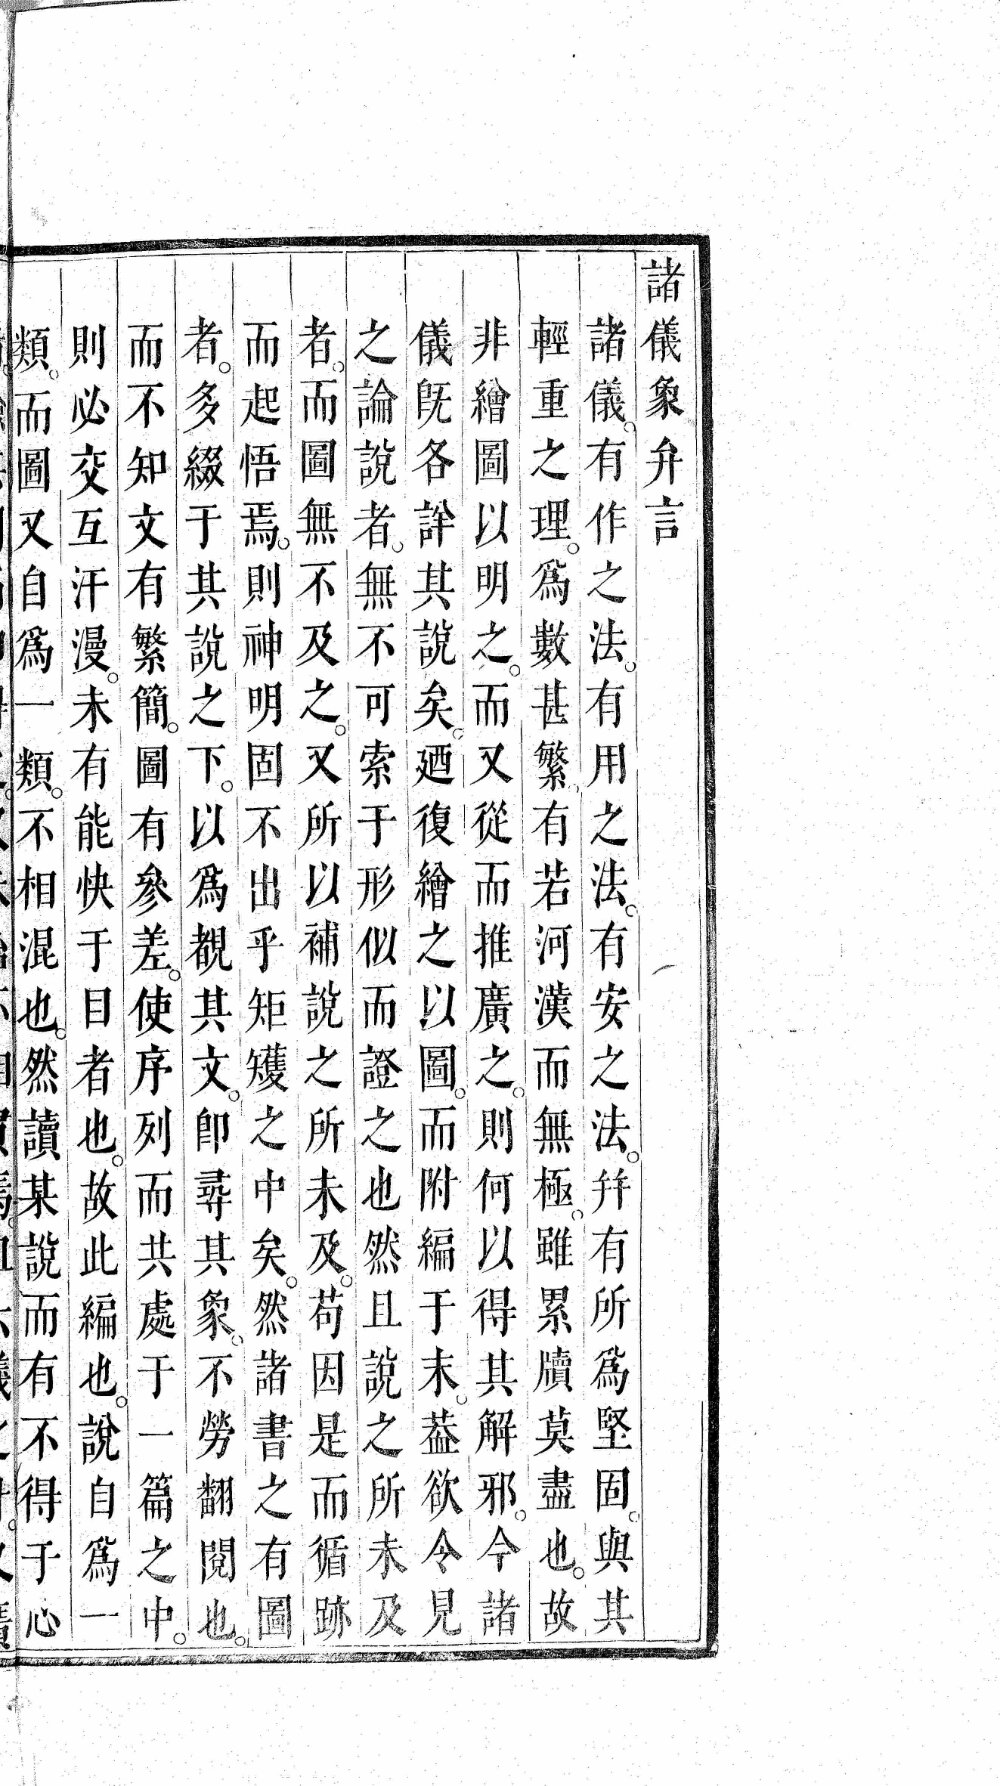 諸儀象弁言
諸儀。有作之法。有用之法。有安之法。幷有所爲堅固。與其
輕重之理。爲數甚繁。有若河漢而無極。雖累牘莫盡也。故
非繪圖以明之。而又從而推廣之。則何以得其解邪。今諸
儀旣各詳其說矣。廼復繪之以圖。而附編于末。葢欲令見
之論說者。無不可索于形似而證之也然且說之所未及
者。而圖無不及之。又所以補說之所未及。苟因是而循跡
而起悟焉。則神明固不出乎矩矱之中矣。然諸書之有圖
者。多綴于其說之下。以爲覩其文。卽尋其象。不勞翻閱也。
而不知文有繁簡。圖有參差。使序列而共處于一篇之中。
則必交互汗漫。未有能快于目者也。故此編也。說自爲一
類。而圖又自爲一類。不相混也。然讀某說而有不得于心